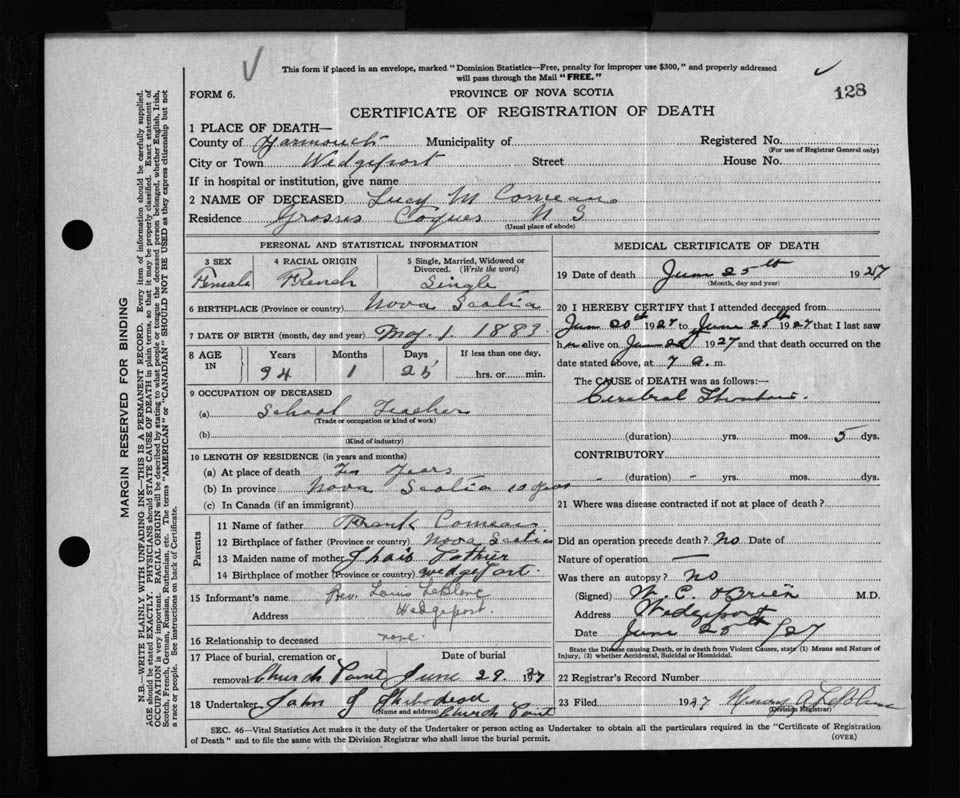 This form if placed in an envelope, marked "Dominion Statistics—Free, penalty for improper use $300," and properly addressed
will pass through the Mail "FREE."
128
FORM 6.
PROVINCE OF NOVA SCOTIA
CERTIFICATE OF REGISTRATION OF DEATH
MARGIN RESERVED FOR BINDING
N.B.—WRITE PLAINLY WITH UNFADING INK—THIS IS A PERMANENT RECORD. Every item of information should be carefully supplied.
AGE should be stated EXACTLY. PHYSICIANS should STATE CAUSE OF DEATH in plain terms, so that it may be properly classified. Exact statement of
OCCUPATION is very important. RACIAL ORIGIN will be described by stating to what people or tongue the deceased person belonged, whether English, Irish,
Scotch, French, German, Russian, Ruthenian, etc. The terms "AMERICAN" or "CANADIAN" SHOULD NOT BE USED as they express citizenship but not
a race or people. See instructions on back of Certificate.
1 PLACE OF DEATH—
County of Yarmouth Municipality of Registered No.
(For use of Registrar General only)
City or Town Wedgeport Street House No.
If in hospital or institution, give name
2 NAME OF DECEASED Lucy M Comeau
Residence Grosses Coques N S
(Usual place of abode)
PERSONAL AND STATISTICAL INFORMATION
3 SEX 4 RACIAL ORIGIN 5 Single, Married, Widowed or
Divorced. (Write the word)
Female French Single
6 BIRTHPLACE (Province or country) Nova Scotia
7 DATE OF BIRTH (month, day and year) May 1. 1883
8 AGE IN Years Months Days If less than one day,
94 1 25 hrs. or min.
9 OCCUPATION OF DECEASED
(a) School Teacher
(Trade or occupation or kind of work)
(b)
(Kind of industry)
10 LENGTH OF RESIDENCE (in years and months)
(a) At place of death Ten Years
(b) In province Nova Scotia 10
(c) In Canada (if an immigrant)
Parents
11 Name of father Frank Comeau
12 Birthplace of father (Province or country) Nova Scotia
13 Maiden name of mother
14 Birthplace of mother (Province or country) Wedgeport
15 Informant's name Rev. Louis LeBlanc
Address Wedgeport
16 Relationship to deceased none
17 Place of burial, cremation or Date of burial
removal Church Point June 29.
18 Undertaker John J Thibodeau
(Name and address) Church Point
MEDICAL CERTIFICATE OF DEATH
19 Date of death June 25th 1927
(Month, day and year)
20 I HEREBY CERTIFY that I attended deceased from
June 20th 1927 to June 25th 1927 that I last saw
h alive on June 1927 and that death occurred on the
date stated above, at 7 a. m.
The CAUSE of DEATH was as follows:—
Cerebral
(duration) yrs. mos. 5 dys.
CONTRIBUTORY
(duration) yrs. mos. dys.
21 Where was disease contracted if not at place of death?
Did an operation precede death? No Date of
Nature of operation —
Was there an autopsy? No
(Signed) W. C. O'Brien M.D.
Address Wedgeport
Date June 25th /27
State the Disease causing Death, or in death from Violent Causes, state (1) Means and Nature of
Injury, (2) whether Accidental, Suicidal or Homicidal.
22 Registrar's Record Number
23 Filed 1927 Henry A LeBlanc
(Division Registrar)
SEC. 46—Vital Statistics Act makes it the duty of the Undertaker or person acting as Undertaker to obtain all the particulars required in the "Certificate of Registration
of Death" and to file the same with the Division Registrar who shall issue the burial permit.
(OVER)